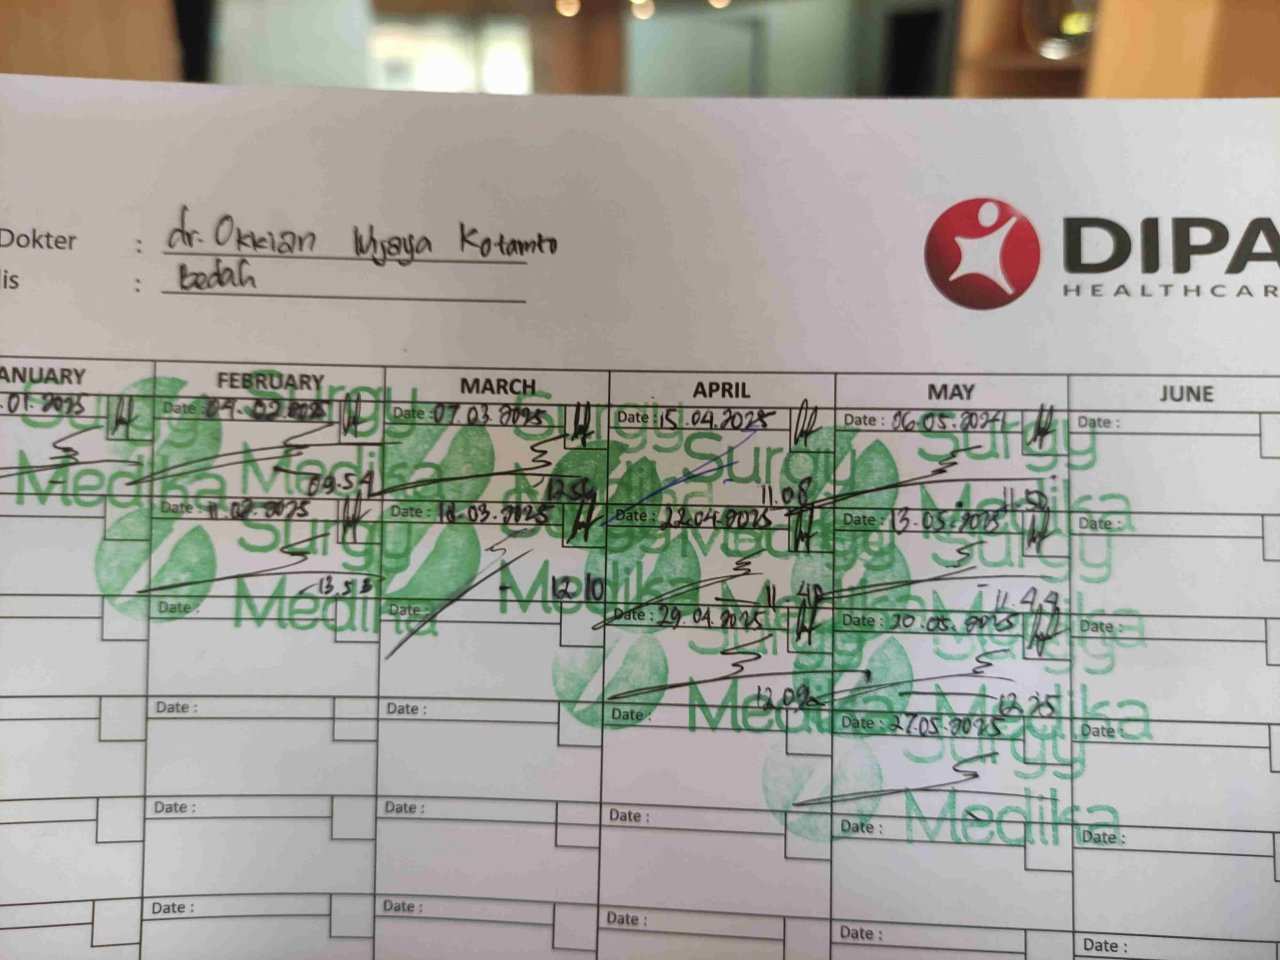 Dokter : dr. Okkian Wijaya Kotamto
lis : bedah
DIPA
HEALTHCAR
ANUARY FEBRUARY MARCH APRIL MAY JUNE
.01.2025 Date : 04.02.2025 Date : 07.03.2025 Date : 15.04.2025 Date : 06.05.2024 Date :
Surgy Surgy Surgy Surgy Surgy
Medika Medika Medika Medika
09.54 12.54 11.08 11.50
Date : 11.02.2025 Date : 18.03.2025 Date : 22.04.2025 Date : 13.05.2025 Date :
Surgy Surgy
Medika Medika
13.53 12.10 11.40 11.44
Date : Date : Date : 29.04.2025 Date : 20.05.2025 Date :
Surgy Surgy
Medika Medika
12.02 12.25
Date : Date : Date : Date : 27.05.2025 Date :
Surgy
Medika
Date : Date : Date : Date : Date :
Date : Date : Date : Date : Date :